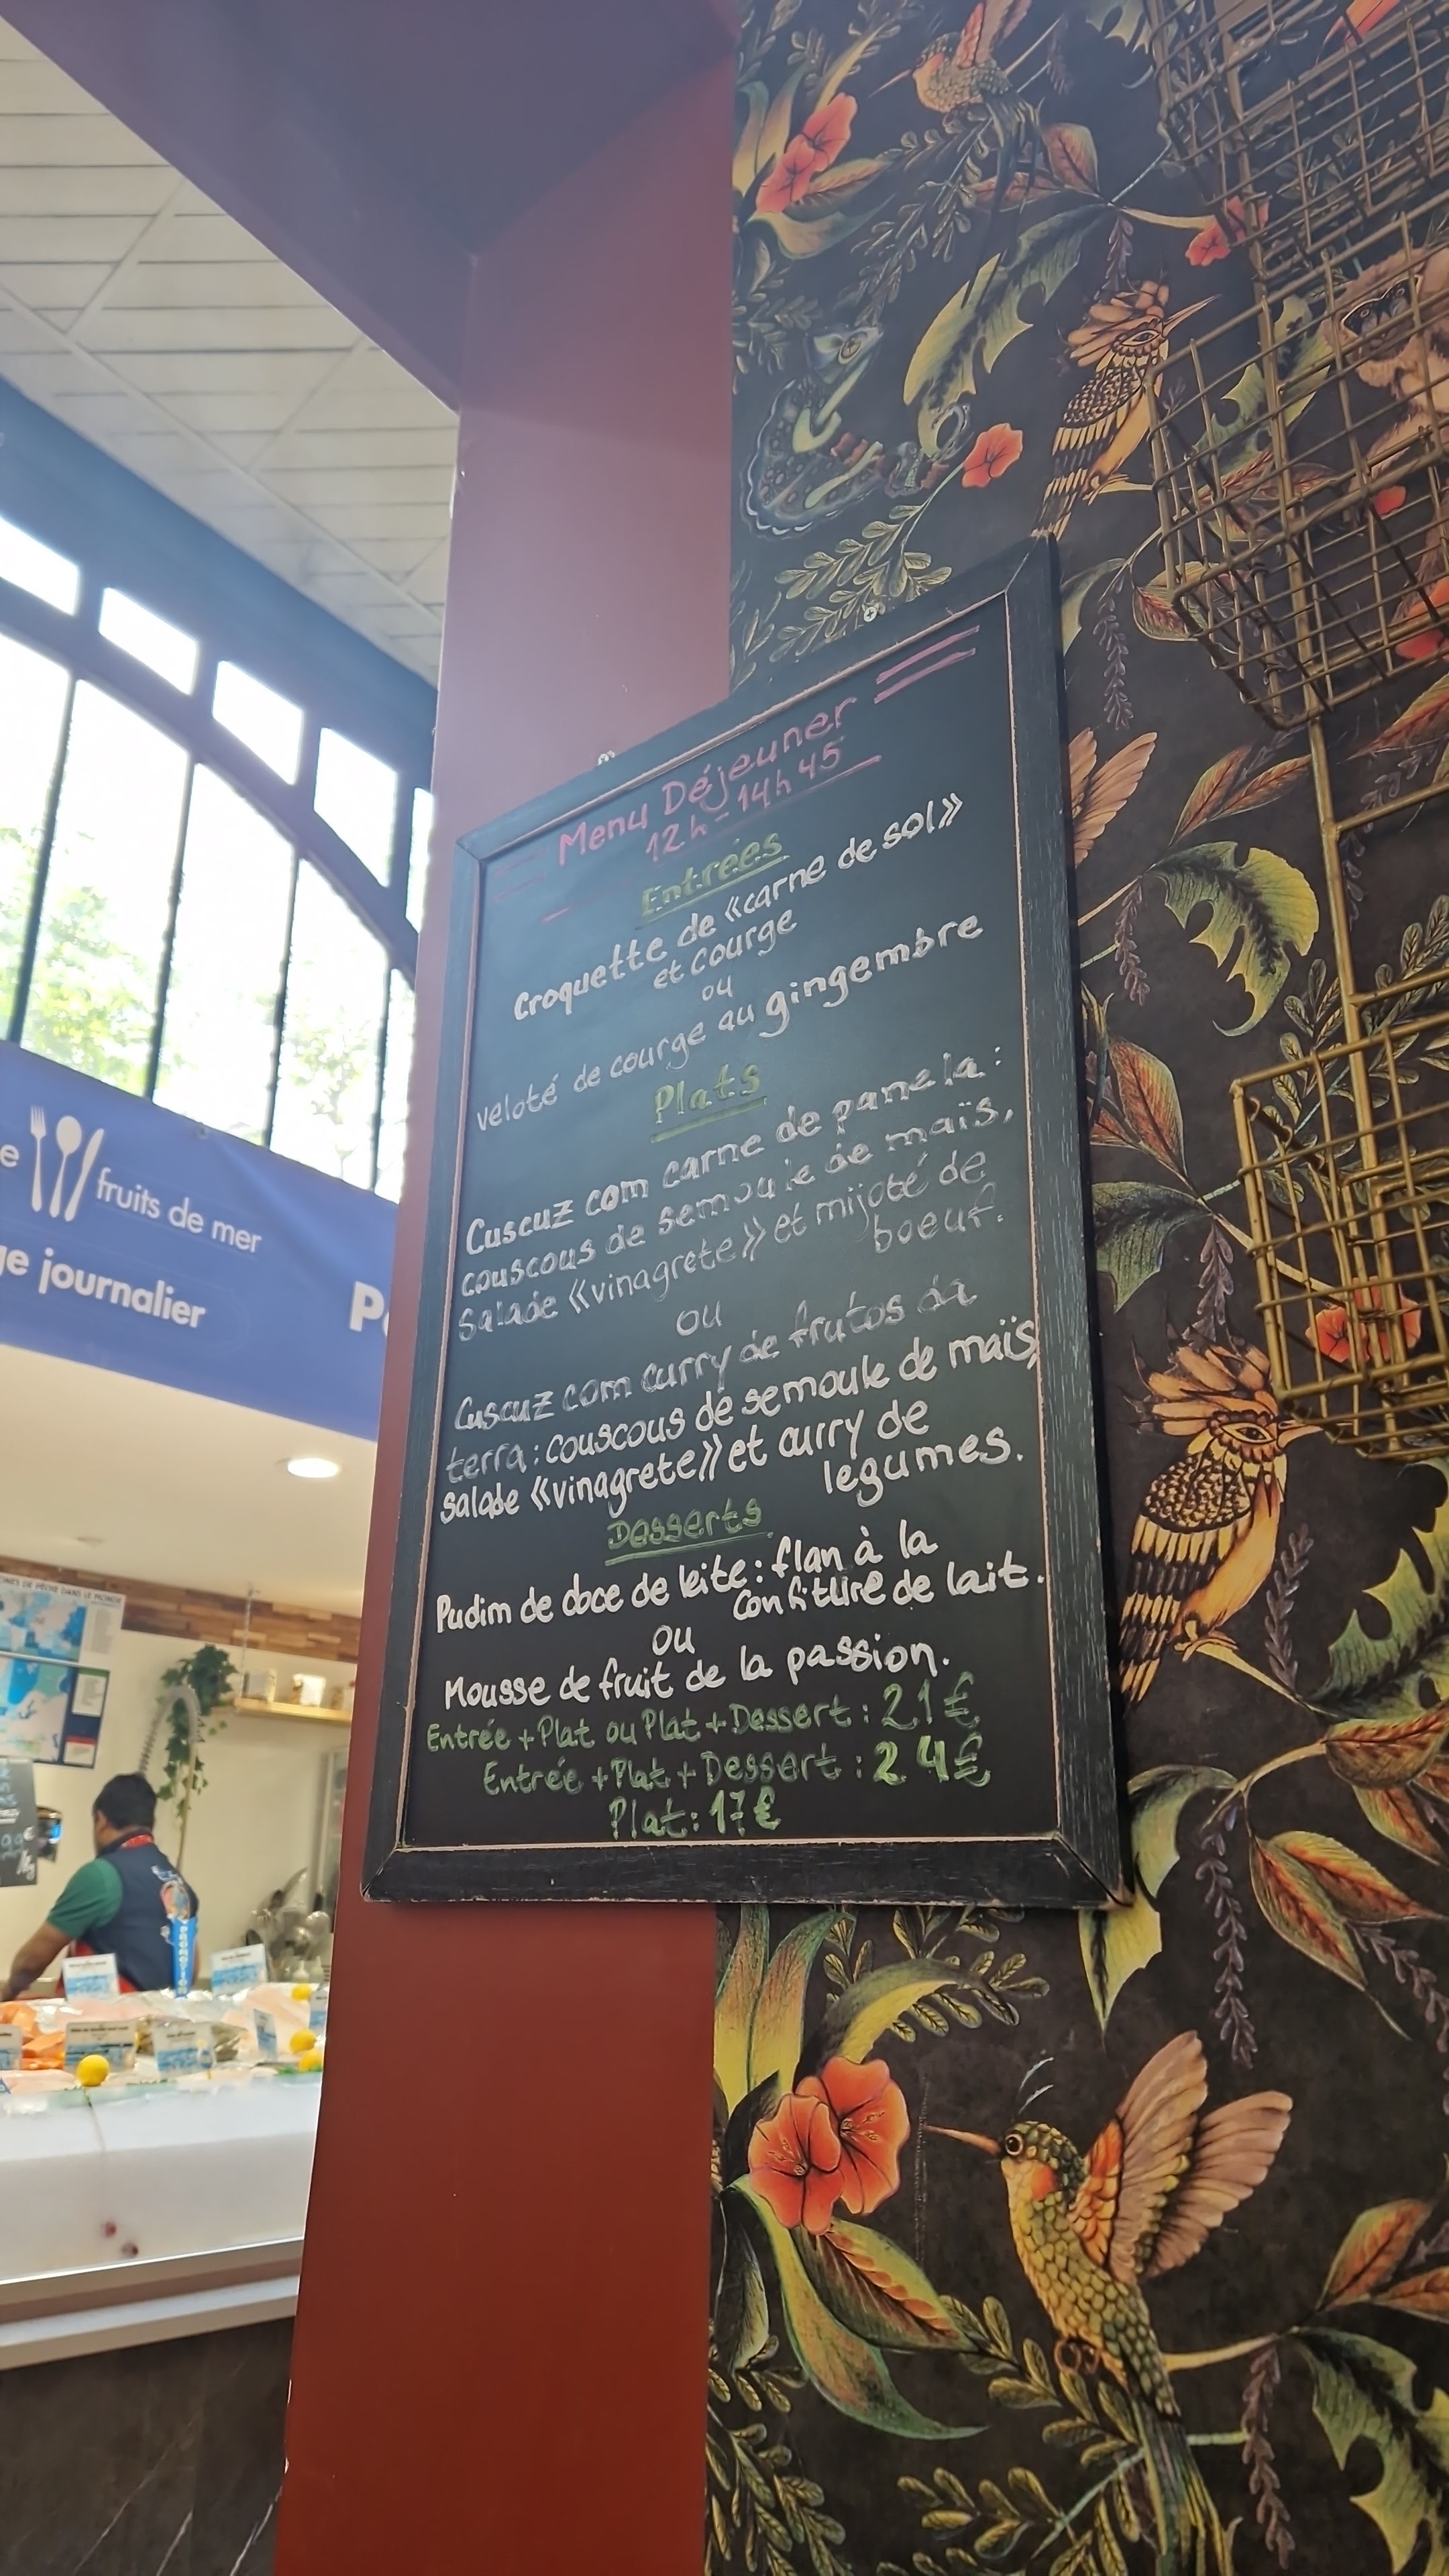 Menu Déjeuner
12h-14h45
Entrées
Croquette de «carne de sol»
et Courge
ou
velouté de courge au gingembre
Plats
Cuscuz com carne de panela:
couscous de semoule de maïs,
Salade «vinagrete» et mijoté de
boeuf.
ou
Cuscuz com curry de frutos da
terra: couscous de semoule de maïs,
salade «vinagrete» et curry de
legumes.
Desserts
Pudim de doce de leite: flan à la
confiture de lait.
ou
Mousse de fruit de la passion.
Entrée+Plat ou Plat+Dessert: 21€
Entrée+Plat+Dessert: 24€
Plat: 17€
e fruits de mer
ge journalier
P
DE PÊCHE DANS LE MONDE